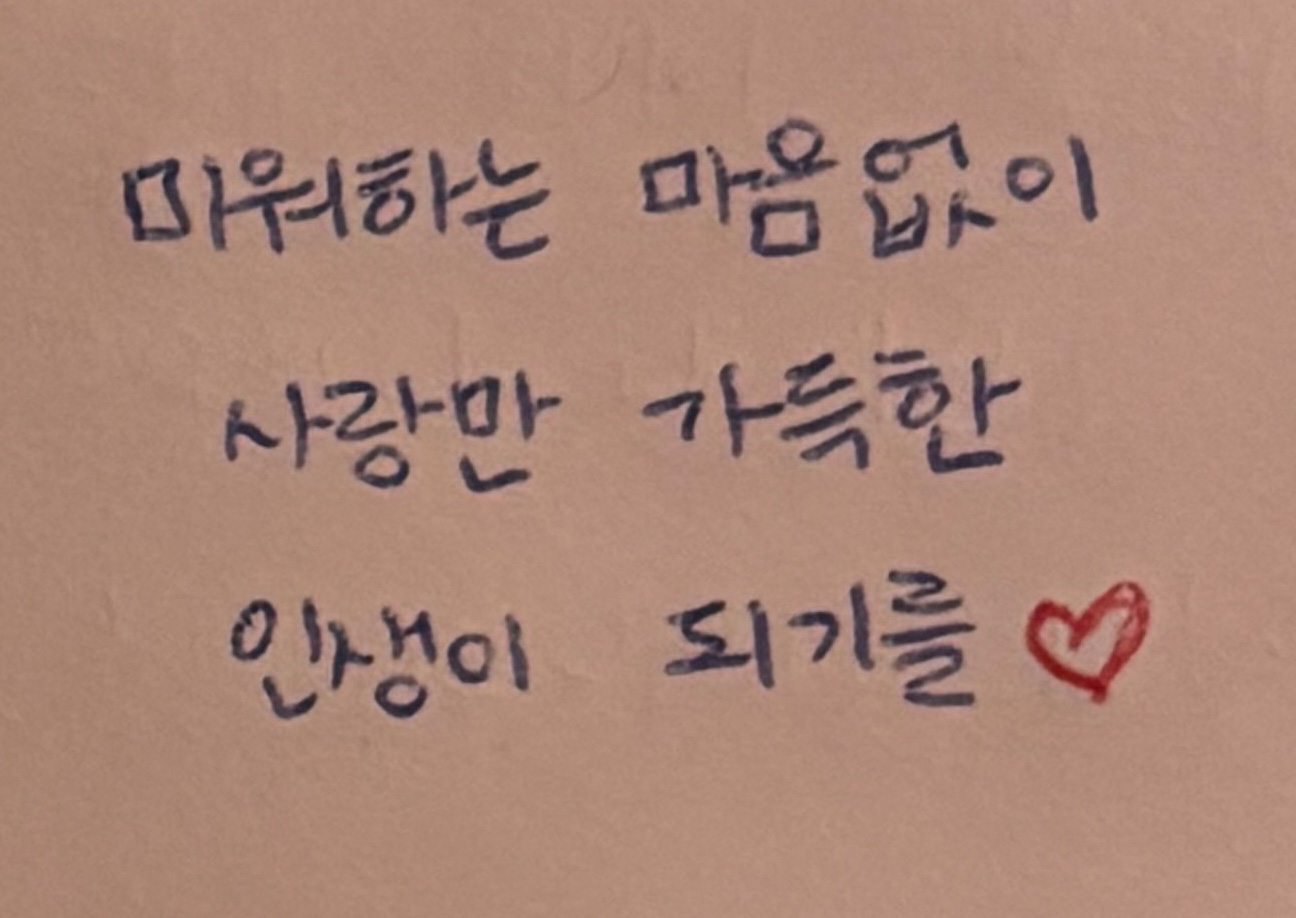 미워하는 마음없이
사랑만 가득한
인생이 되기를♡